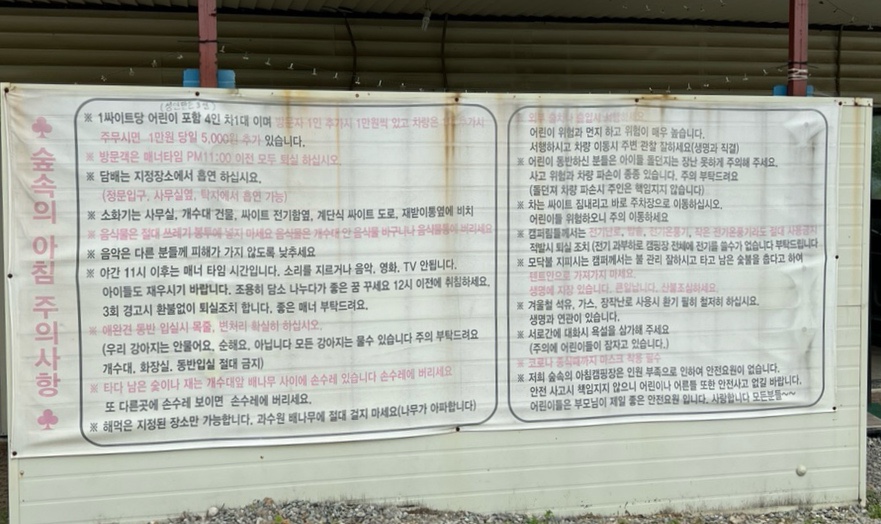 ♣ 숲속의 아침 주의사항 ♣
※ 1싸이트당 어린이 포함 4인 차1대 이며 방문자 1인 추가시 1만원씩 있고 차량은
주무시면 1만원 당일 5,000원 추가 있습니다.
※ 방문객은 매너타임 PM11:00 이전 모두 퇴실 하십시요.
※ 담배는 지정장소에서 흡연 하십시요.
(정문입구, 사무실옆, 탁자에서 흡연 가능)
※ 소화기는 사무실, 개수대 건물, 싸이트 전기함옆, 계단식 싸이트 도로, 재받이통옆에 비치
※ 음식물은 절대 쓰레기 봉투에 넣지 마세요 음식물은 개수대 안 음식물 바구니나 음식물통에 버리세요
※ 음악은 다른 분들께 피해가 가지 않도록 낮추세요
※ 야간 11시 이후는 매너 타임 시간입니다. 소리를 지르거나 음악, 영화, TV 안됩니다.
아이들도 재우시기 바랍니다. 조용히 담소 나누다가 좋은 꿈 꾸세요 12시 이전에 취침하세요.
3회 경고시 환불없이 퇴실조치 합니다. 좋은 매너 부탁드려요.
※ 애완견 동반 입실시 목줄, 변처리 확실히 하십시요.
(우리 강아지는 안물어요, 순해요, 아닙니다 모든 강아지는 물수 있습니다 주의 부탁드려요
개수대, 화장실, 동반입실 절대 금지)
※ 타다 남은 숯이나 재는 개수대앞 배나무 사이에 손수레 있습니다 손수레에 버리세요
또 다른곳에 손수레 보이면 손수레에 버리세요.
※ 해먹은 지정된 장소만 가능합니다, 과수원 배나무에 절대 걸지 마세요(나무가 아파합니다)
어린이 위험과 먼지 하고 위험이 매우 높습니다.
서행하시고 차량 이동시 주변 관찰 잘하세요(생명과 직결)
※ 어린이 동반하신 분들은 아이들 돌던지는 장난 못하게 주의해 주세요.
사고 위험과 차량 파손이 종종 있습니다. 주의 부탁드려요
(돌던져 차량 파손시 주인은 책임지지 않습니다)
※ 차는 싸이트 짐내리고 바로 주차장으로 이동하십시요.
어린이들 위험하오니 주의 이동하세요
※ 캠퍼님들께서는 전기난로, 전기온풍기, 작은 전기온풍기라도 절대 사용금지
적발시 퇴실 조치 (전기 과부하로 캠핑장 전체에 전기를 쓸수가 없습니다 부탁드립니다
※ 모닥불 지피시는 캠퍼께서는 불 관리 잘하시고 타고 남은 숯불을 춥다고 하여
텐트안으로 가져가지 마세요.
생명에 지장 있습니다. 큰일납니다. 산불조심하세요.
※ 겨울철 석유, 가스, 장작난로 사용시 환기 필히 철저히 하십시요.
생명과 연관이 있습니다.
※ 서로간에 대화시 욕설을 삼가해 주세요
(주의에 어린이들이 잠자고 있습니다.)
※ 코로나 종식때까지 마스크 착용 필수
※ 저희 숲속의 아침캠핑장은 인원 부족으로 인하여 안전요원이 없습니다.
안전 사고시 책임지지 않으니 어린이나 어른들 또한 안전사고 없길 바랍니다.
어린이들은 부모님이 제일 좋은 안전요원 입니다. 사랑합니다 모든분들~~